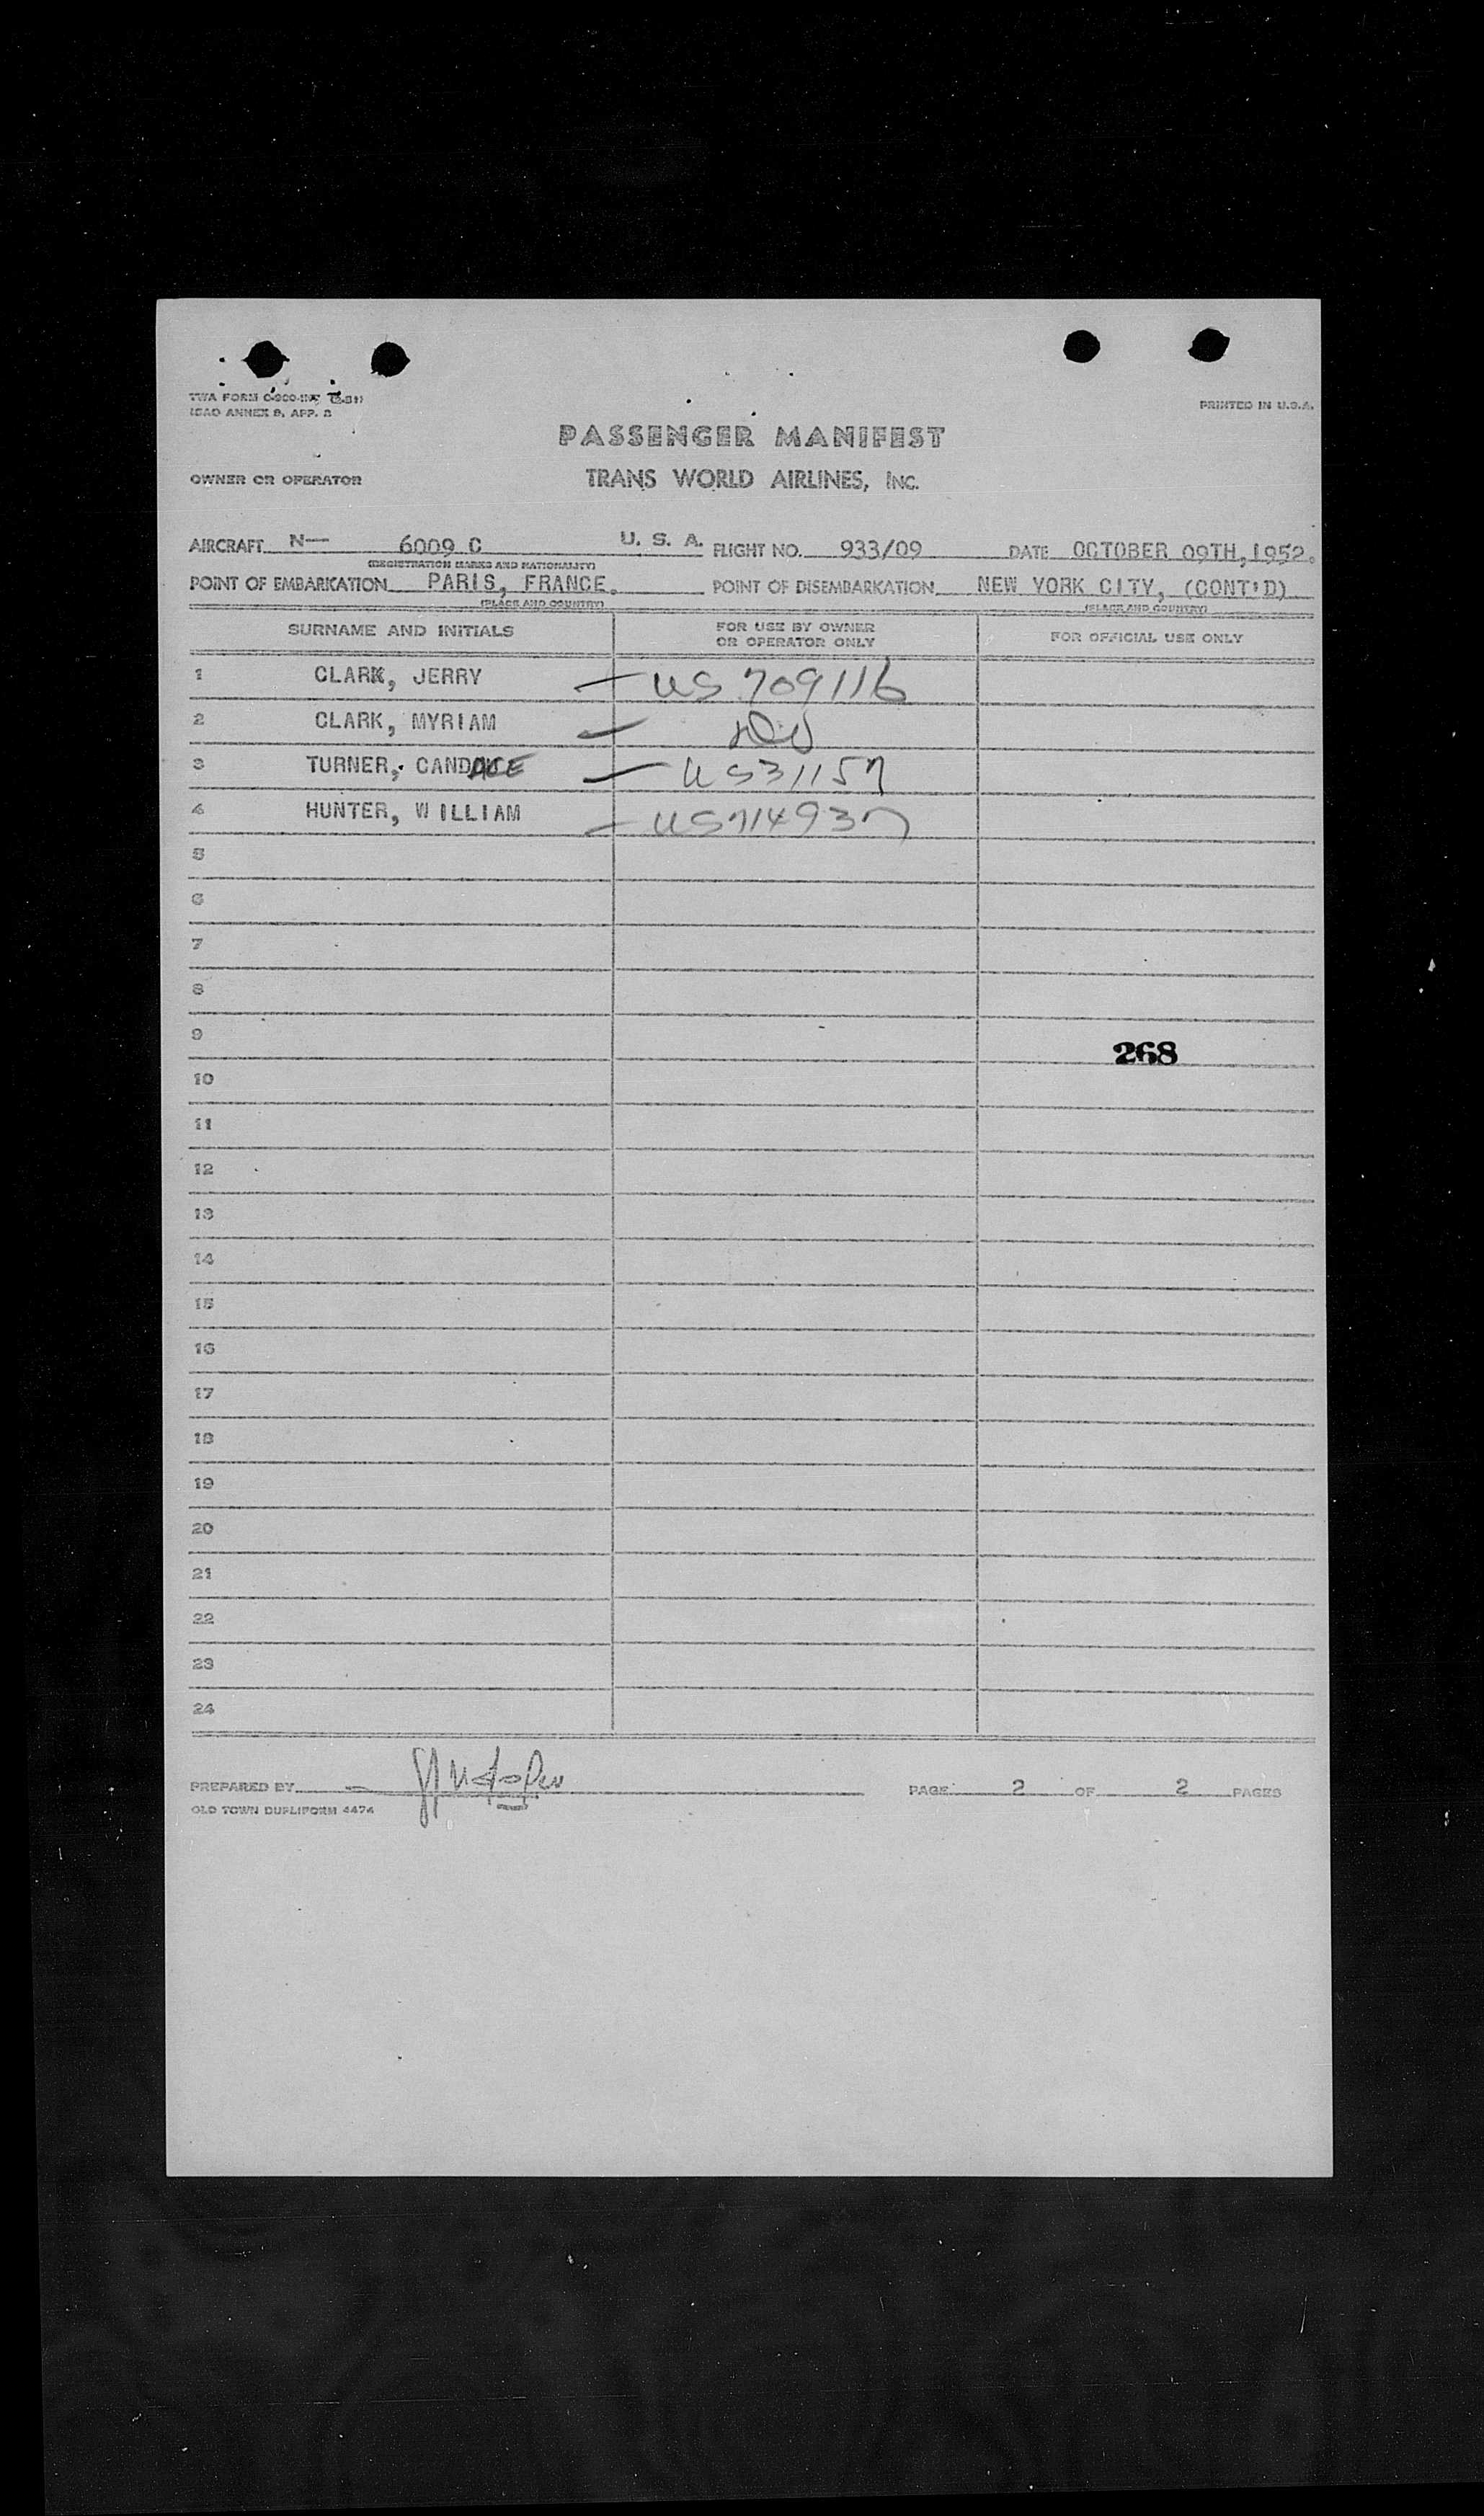 TWA FORM C-900-INT (2-51)
ICAO ANNEX 9, APP. 2
PRINTED IN U.S.A.
PASSENGER MANIFEST
OWNER OR OPERATOR TRANS WORLD AIRLINES, INC.
AIRCRAFT N— 6009 C U. S. A. FLIGHT NO. 933/09 DATE OCTOBER 09TH, 1952.
(REGISTRATION MARKS AND NATIONALITY)
POINT OF EMBARKATION PARIS, FRANCE. POINT OF DISEMBARKATION NEW YORK CITY, (CONT'D)
(PLACE AND COUNTRY) (PLACE AND COUNTRY)
SURNAME AND INITIALS FOR USE BY OWNER OR OPERATOR ONLY FOR OFFICIAL USE ONLY
1 CLARK, JERRY — US 709116
2 CLARK, MYRIAM —
3 TURNER, CANDACE — US31157
4 HUNTER, WILLIAM — US714937
5
6
7
8
9
268
10
11
12
13
14
15
16
17
18
19
20
21
22
23
24
PREPARED BY PAGE 2 OF 2 PAGES
OLD TOWN DUPLIFORM 4474